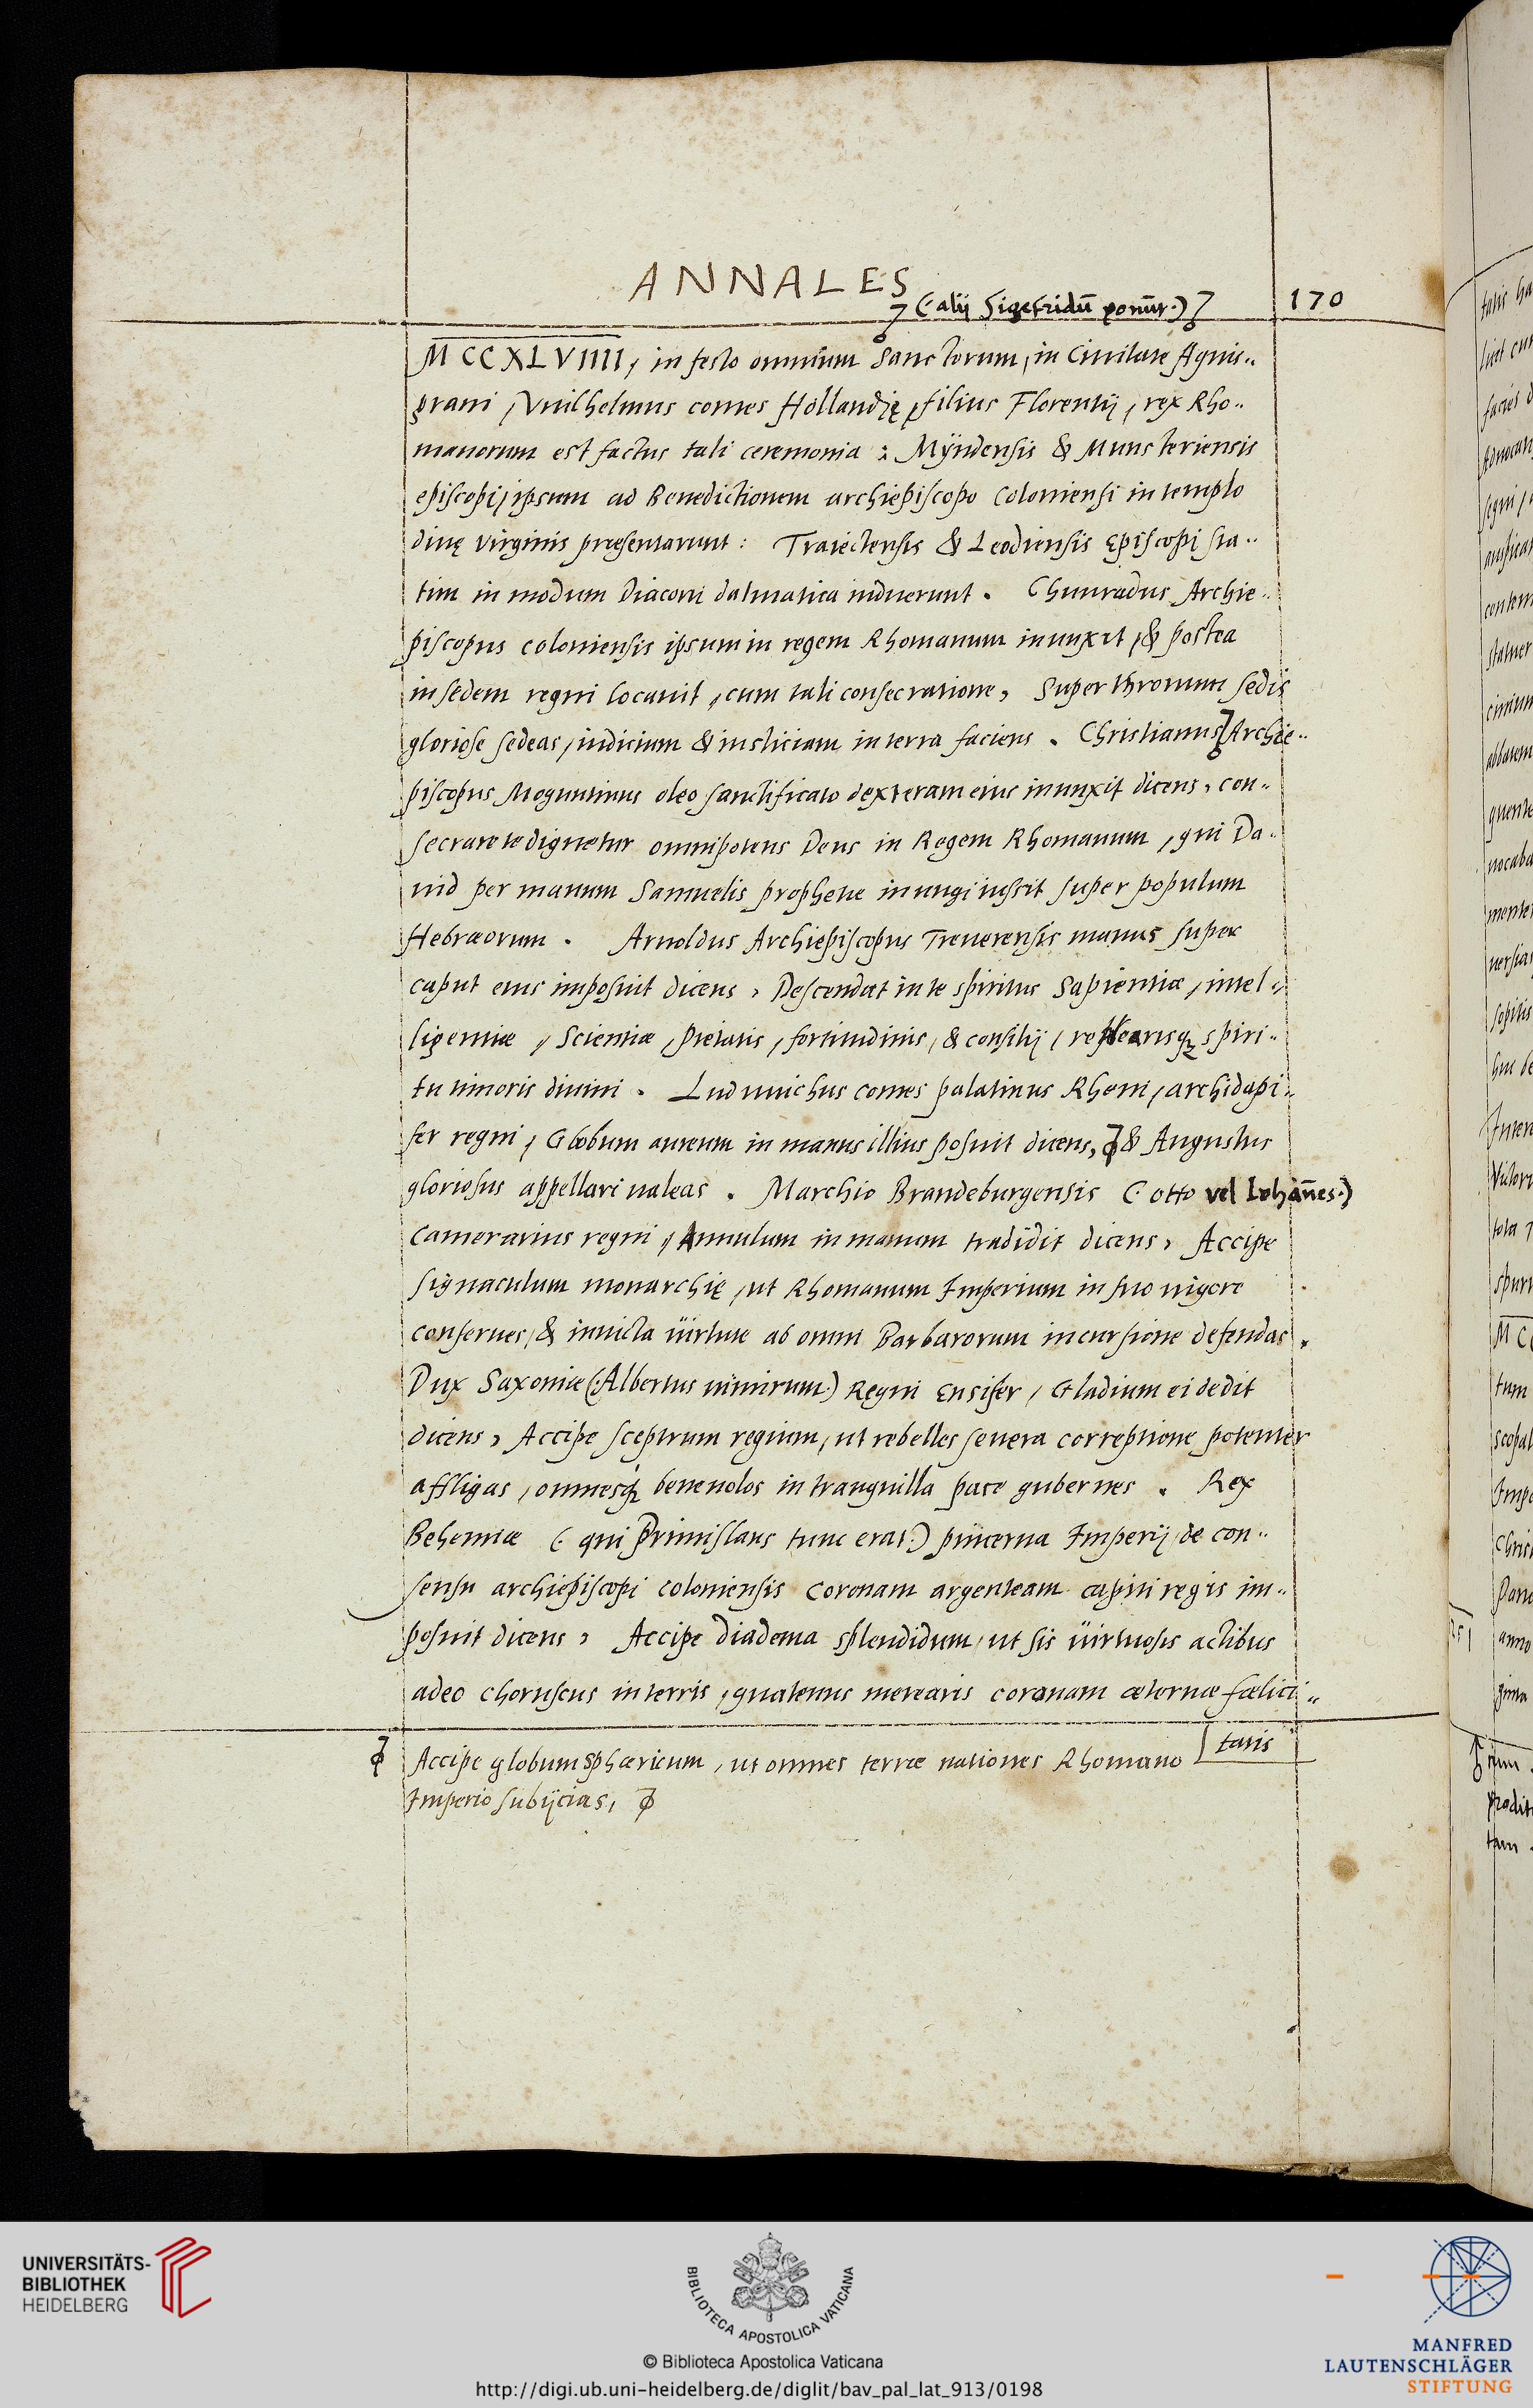 ANNALES
(· alij Sigefridū ponūt ·)
170
MCCXLVIIII, in festo omnium Sanctorum, in Ciuitate Aquis..
grani, Vuilhelmus comes Hollandię, filius Florentij, rex Rho..
manorum est factus tali ceremonia : Mÿndensis & Munsteriensis
episcopi, ipsum ad Benedictionem archiepiscopo Coloniensi in templo
diuę Virginis præsentarunt : Traiectensis & Leodiensis Episcopi sta..
tim in modum Diaconi dalmatica induerunt . Chunradus Archie..
piscopus coloniensis ipsum in regem Rhomanum inunxit, & postea
in sedem regni locauit, cum tali consecratione, Super thronum sedis
gloriose sedeas, iudicium & iusticiam in terra faciens . Christianus Archie..
piscopus Moguntinus oleo sanctificato dexteram eius inunxit dicens, con..
secrare te dignetur omnipotens Deus in Regem Rhomanum, qui Da..
uid per manum Samuelis prophetæ inungi iussit super populum
Hebræorum . Arnoldus Archiepiscopus Treuerensis manus super
caput eius imposuit dicens, Descendat in te spiritus Sapientiæ, intel..
ligentiæ, Scientiæ, pietatis, fortitudinis, & consilij, replearisqꝫ spiri..
tu timoris diuini . Luduuichus comes palatinus Rheni, archidapi..
fer regni, Globum aureum in manus illius posuit dicens, & Augustus
gloriosus appellari ualeas . Marchio Brandeburgensis (· otto vel Iohan̄es ·)
Camerarius regni, Annulum in manum tradidit dicens, Accipe
signaculum monarchię, ut Rhomanum Imperium in suo uigore
conserues, & inuicta uirtute ab omni Barbarorum incursione defendas .
Dux Saxoniæ (· Albertus nimirum ·) Regni Ensifer, Gladium ei dedit
dicens, Accipe sceptrum regium, ut rebelles seuera correptione potenter
affligas, omnesqꝫ beneuolos in tranquilla pace gubernes . Rex
Behemiæ (· qui Primislaus tunc erat ·) pincerna Imperij de con..
sensu archiepiscopi coloniensis Coronam argenteam capiti regis im..
posuit dicens, Accipe diadema splendidum, ut sis uirtuosis actibus
adeo choruscus in terris, quatenus merearis coronam æternæ fælici..
tatis
Accipe globum sphæricum, ut omnes terræ nationes Rhomano
Imperio subijcias,
UNIVERSITÄTS-
BIBLIOTHEK
HEIDELBERG
BIBLIOTECA APOSTOLICA VATICANA
© Biblioteca Apostolica Vaticana
http://digi.ub.uni-heidelberg.de/diglit/bav_pal_lat_913/0198
MANFRED
LAUTENSCHLÄGER
STIFTUNG